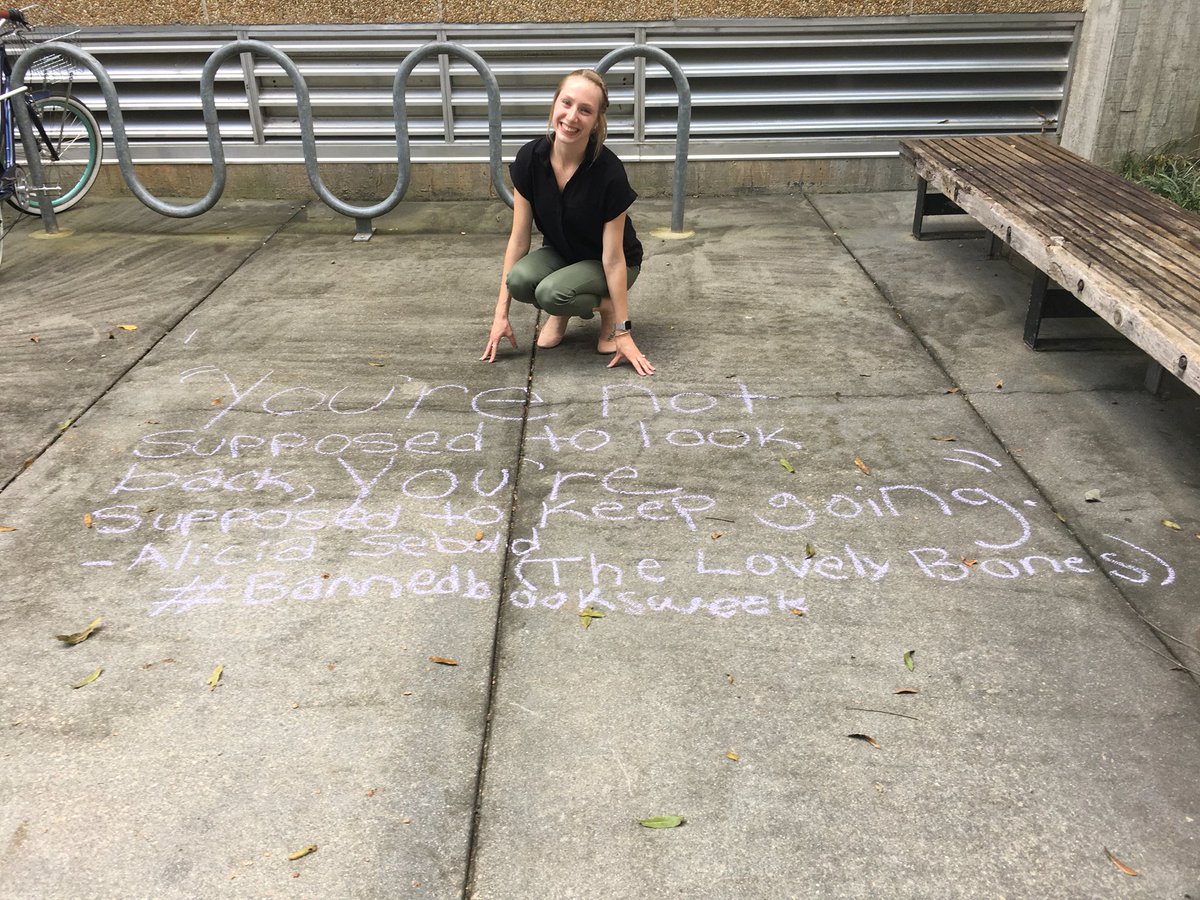 "You're not
Supposed to look
back, You're
Supposed to keep going."
- Alicia Sebold (The Lovely Bones)
#Bannedbooksweek